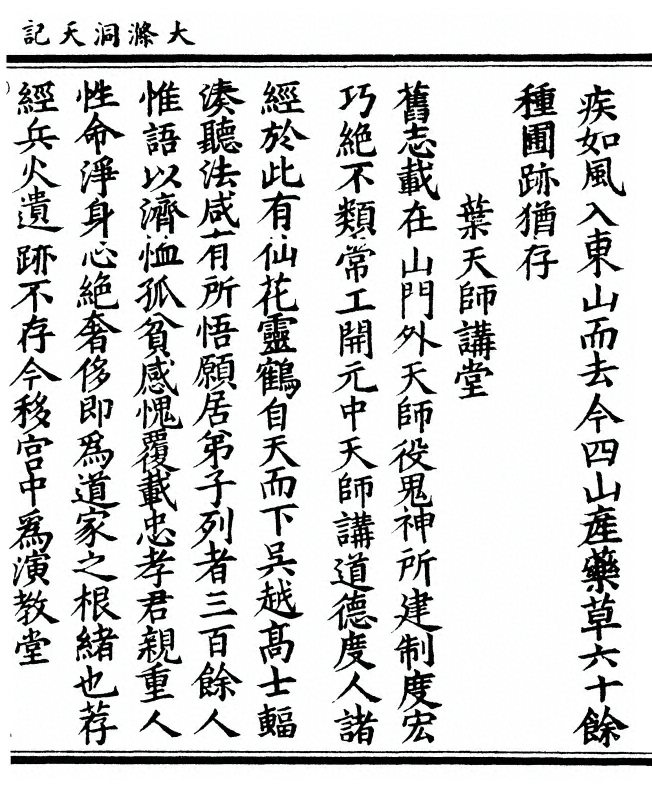 大滌洞天記
疾如風入東山而去今四山產藥草六十餘
種圃跡猶存
葉天師講堂
舊志載在山門外天師役鬼神所建制度宏
巧絶不類常工開元中天師講道德度人諸
經於此有仙花靈鶴自天而下吳越髙士輻
湊聽法咸有所悟願居弟子列者三百餘人
惟語以濟恤孤貧感愧覆載忠孝君親重人
性命淨身心絶奢侈即爲道家之根緒也荐
經兵火遺跡不存今移宫中爲演教堂